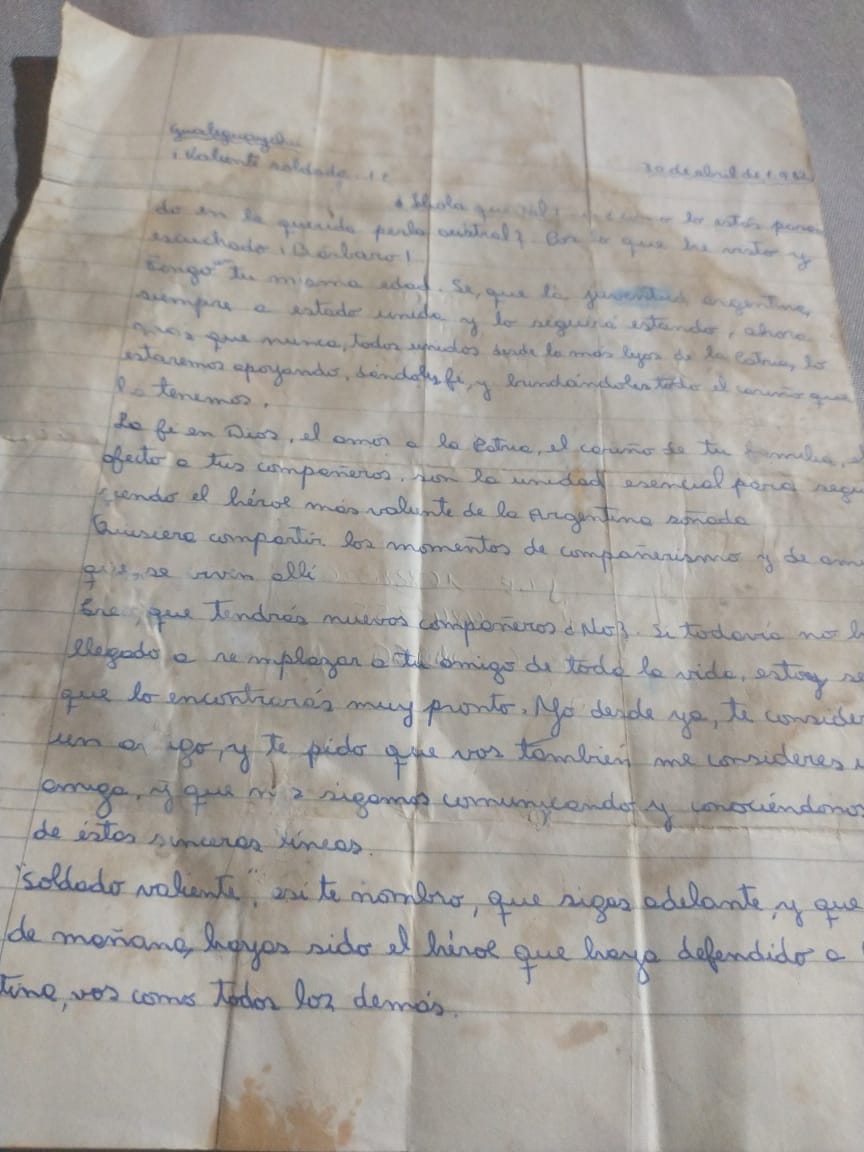 Gualeguaychu
¡ Valiente soldado..!!
30 de abril de 1.982
¡ Hola que tal! como lo estás pasan
do en la querida perla austral? Por lo que he visto y
escuchado ¡Bárbaro!
Tengo tu misma edad. Se, que la juventud argentina,
siempre a estado unida y lo seguirá estando, ahora
más que nunca, todos unidos desde lo más lejos de la Patria, lo
estaremos apoyando, dándoles fé, y brindándoles todo el cariño que
le tenemos.
La fe en Dios, el amor a la Patria, el cariño de tu familia, el
afecto a tus compañeros, son la unidad esencial para segu
siendo el héroe más valiente de la Argentina soñada
Quisiera compartir los momentos de compañerismo y de am
que, se vivin allí
Creo, que tendrás nuevos compañeros ¿No?. Si todavía no h
llegado a remplazar a tu amigo de toda la vida, estoy se
que lo encontrarás muy pronto. Yo desde ya, te consider
un a igo, y te pido que vos también me consideres
amiga, y que sigamos comunicando y conociéndonos
de éstas sinceras líneas.
"soldado valiente", asi te nombro, que sigas adelante, y que
de mañana, hayas sido el héroe que haya defendido a
tina, vos como todos los demás.